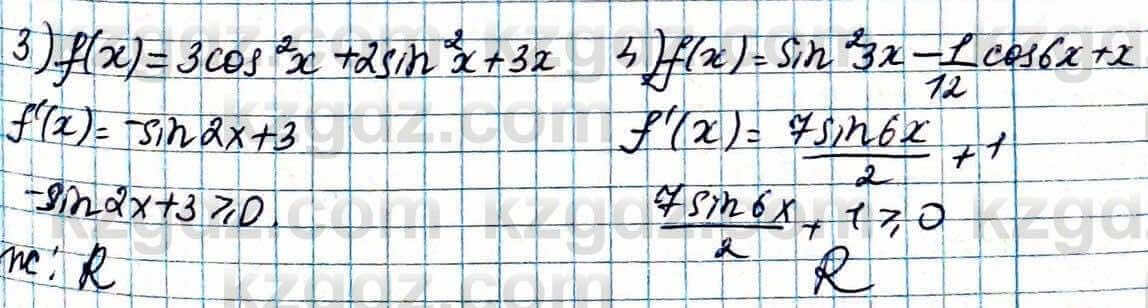 3) f(x) = 3cos²x + 2sin²x + 3x
f'(x) = -sin2x + 3
-sin2x + 3 ⩾ 0.
жс: R
4) f(x) = sin²3x - 1/12 cos6x + x
f'(x) = 7sin6x/2 + 1
7sin6x/2 + 1 ⩾ 0
R
kzgdz.com